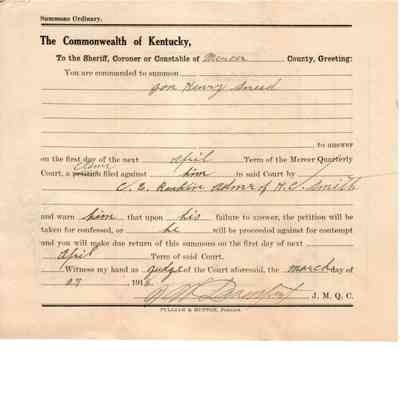 Summons Ordinary.
The Commonwealth of Kentucky,
To the Sheriff, Coroner or Constable of Mercer County, Greeting:
You are commanded to summon
Henry Sneed
to answer
on the first day of the next April Term of the Mercer Quarterly
Court, a petition filed against him in said Court by
C. E. Rankin Admr of H. C. Smith
and warn him that upon his failure to answer, the petition will be
taken for confessed, or he will be proceeded against for contempt
and you will make due return of this summons on the first day of next
April Term of said Court.
Witness my hand as Judge of the Court aforesaid, the March day of
27, 191
J. M. Q. C.
PULLIAM & HUTTON, Printers